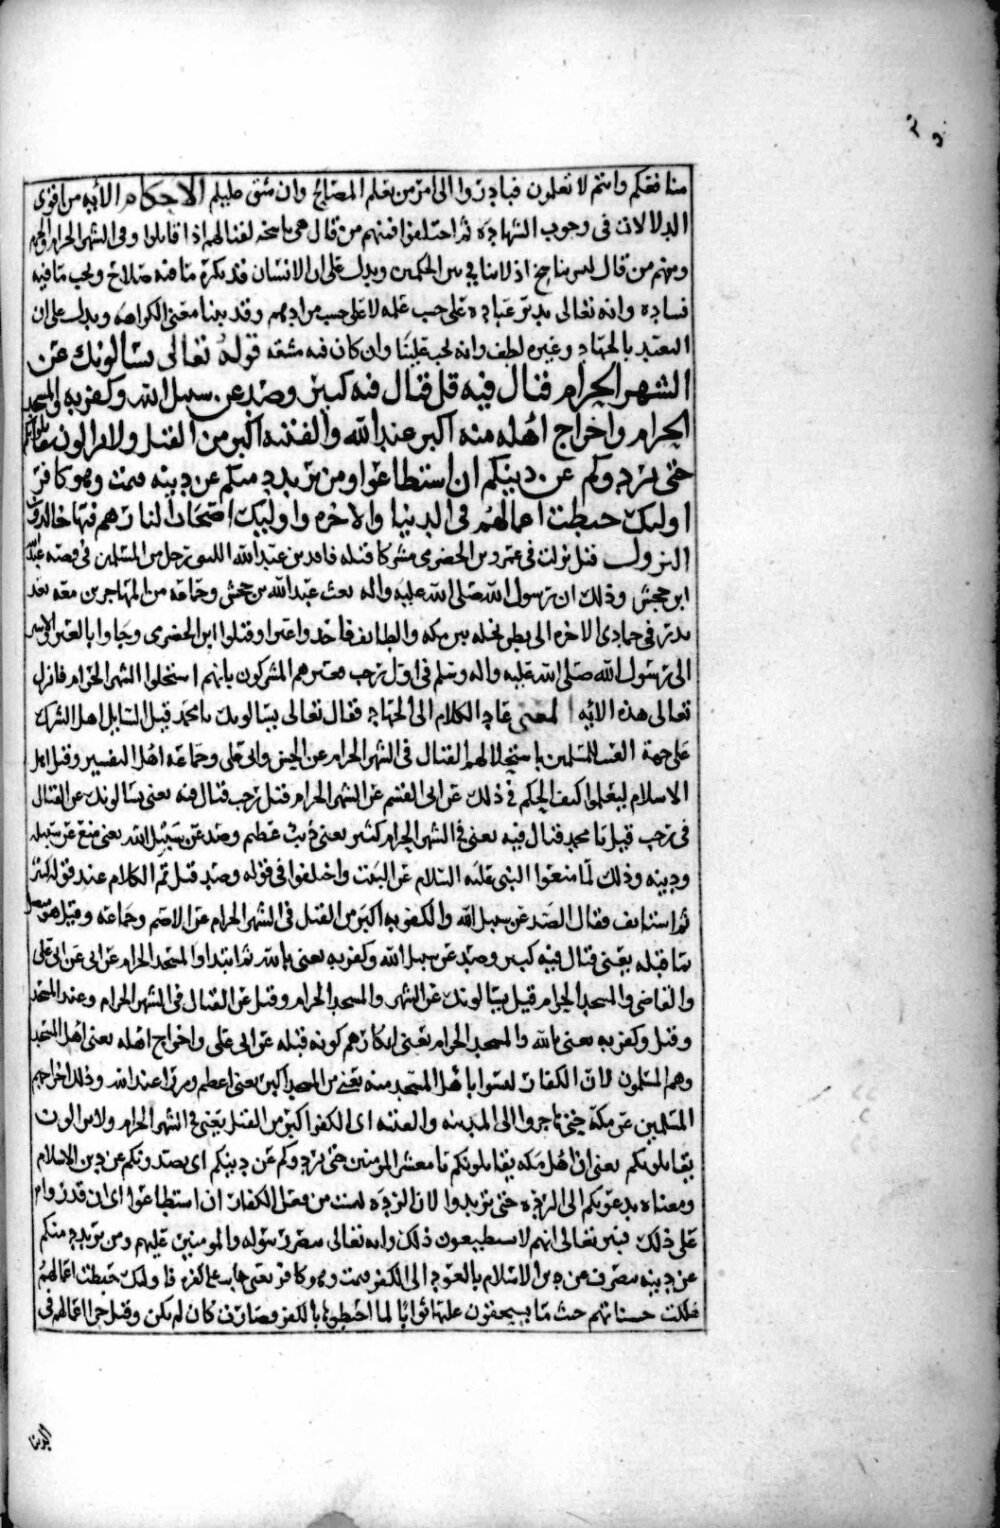 منافعكم وانتم لا تعلمون فبادروا الى امر من يعلم المصالح وان شق عليكم الاحكام الآية من اقوى
الدلالات في وجوب الشهادة ثم اختلفوا فمنهم من قال هي ناسخة لقتالهم اذا قاتلوا وفي الشهر الحرام والحرم
ومنهم من قال ليس بناسخ اذ لا تنافي بين الحكمين ويدل على ان الانسان قد يكره ما فيه صلاح ويحب ما فيه
فساده وانه تعالى يدبر عباده على حسب علمه لا على حسب مرادهم وقد بينا معنى الكراهة ويدل على ان
التعبد بالجهاد وغيره لطف وانه يجب علينا وان كان فيه مشقة قوله تعالى يسألونك عن
الشهر الحرام قتال فيه قل قتال فيه كبير وصد عن سبيل الله وكفر به والمسجد
الحرام واخراج اهله منه اكبر عند الله والفتنة اكبر من القتل ولا يزالون يقاتلونكم
حتى يردوكم عن دينكم ان استطاعوا ومن يرتدد منكم عن دينه فيمت وهو كافر
اولئك حبطت اعمالهم في الدنيا والاخرة واولئك اصحاب النار هم فيها خالدون
النزول قيل نزلت في عمرو بن الحضرمي مشركا قتله واقد بن عبد الله الليثي رجل من المسلمين في قصة عبد الله
ابن جحش وذلك ان رسول الله صلى الله عليه واله بعث عبد الله بن جحش وجماعة من المهاجرين معه بعد
بدر في جمادى الاخرة الى بطن نخلة بين مكة والطايف فاخذوا عيرا وقتلوا ابن الحضرمي وجاوا بالعير والاسير
الى رسول الله صلى الله عليه واله وسلم في اول رجب فعيرهم المشركون بانهم استحلوا الشهر الحرام فانزل
تعالى هذه الآية المعنى عاد الكلام الى الجهاد فقال تعالى يسالونك يا محمد قيل السايل اهل الشرك
على جهة العيب للمسلمين باستحلالهم القتال في الشهر الحرام عن الحسن وابي علي وجماعة اهل التفسير وقيل اهل
الاسلام ليعلموا كيف الحكم في ذلك عن ابي القسم عن الشهر الحرام قيل رجب قتال فيه يعني يسالونك عن القتال
في رجب قيل يا محمد قتال فيه يعني في الشهر الحرام كبير يعني ذنب عظيم وصد عن سبيل الله يعني منع عن سبيله
ودينه وذلك لما منعوا النبي عليه السلام عن البيت واختلفوا في قوله وصد قيل تم الكلام عند قوله كبير
ثم استانف فقال الصد عن سبيل الله والكفر به اكبر من القتل في الشهر الحرام عن الاصم وجماعة وقيل هو متصل
بما قبله يعني قتال فيه كبير وصد عن سبيل الله وكفر به يعني بالله ثم ابتدا والمسجد الحرام عن ابي علي
والقاضي والمسجد الحرام قيل يسالونك عن الشهر والمسجد الحرام وقيل عن القتال في الشهر الحرام وعند المسجد
وقيل وكفر به يعني بالله والمسجد الحرام يعني انكارهم كونه قبلة عن ابي علي واخراج اهله يعني اهل المسجد
وهم المسلمون لان الكفار ليسوا باهل المسجد منه يعني من المسجد اكبر يعني اعظم وزرا عند الله وذلك اخراجهم
المسلمين عن مكة حتى هاجروا الى المدينة والفتنة اي الكفر اكبر من القتل يعني في الشهر الحرام ولا يزالون
يقاتلونكم يعني ان اهل مكة يقاتلونكم يا معشر المومنين حتى يردوكم عن دينكم اي يصدونكم عن دين الاسلام
ومعناه يدعونكم الى الردة حتى ترتدوا لان الردة ليست من فعل الكفار ان استطاعوا اي ان قدروا
على ذلك فبين تعالى انهم لا يستطيعون ذلك وانه تعالى ينصر رسوله والمومنين عليهم ومن يرتدد منكم
عن دينه ينصرف عن دين الاسلام بالعود الى الكفر فيمت وهو كافر يعني مات على كفره فاولئك حبطت اعمالهم
هلكت حسناتهم حيث ما يستحقون عليها ثوابا لما احبطوها بالكفر فصارت كان لم يكن وقيل جزا اعمالهم في
الدنيا